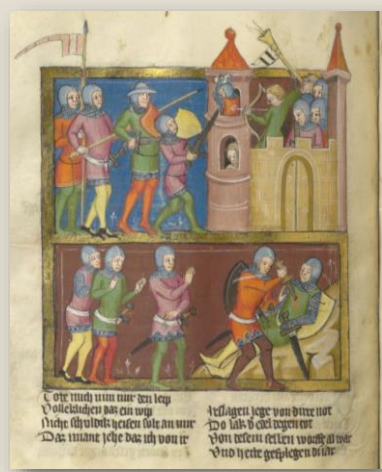 Tote mich nim mir den leip
Volleklichen daz ein wip
Nicht schuldik heisen solt an mir
Daz imant iehe daz ich von ir
Irslagen lege von dirre not
Do lak edel degen tot
Von desem wurffe al war
Vnd hette gepflegen iar